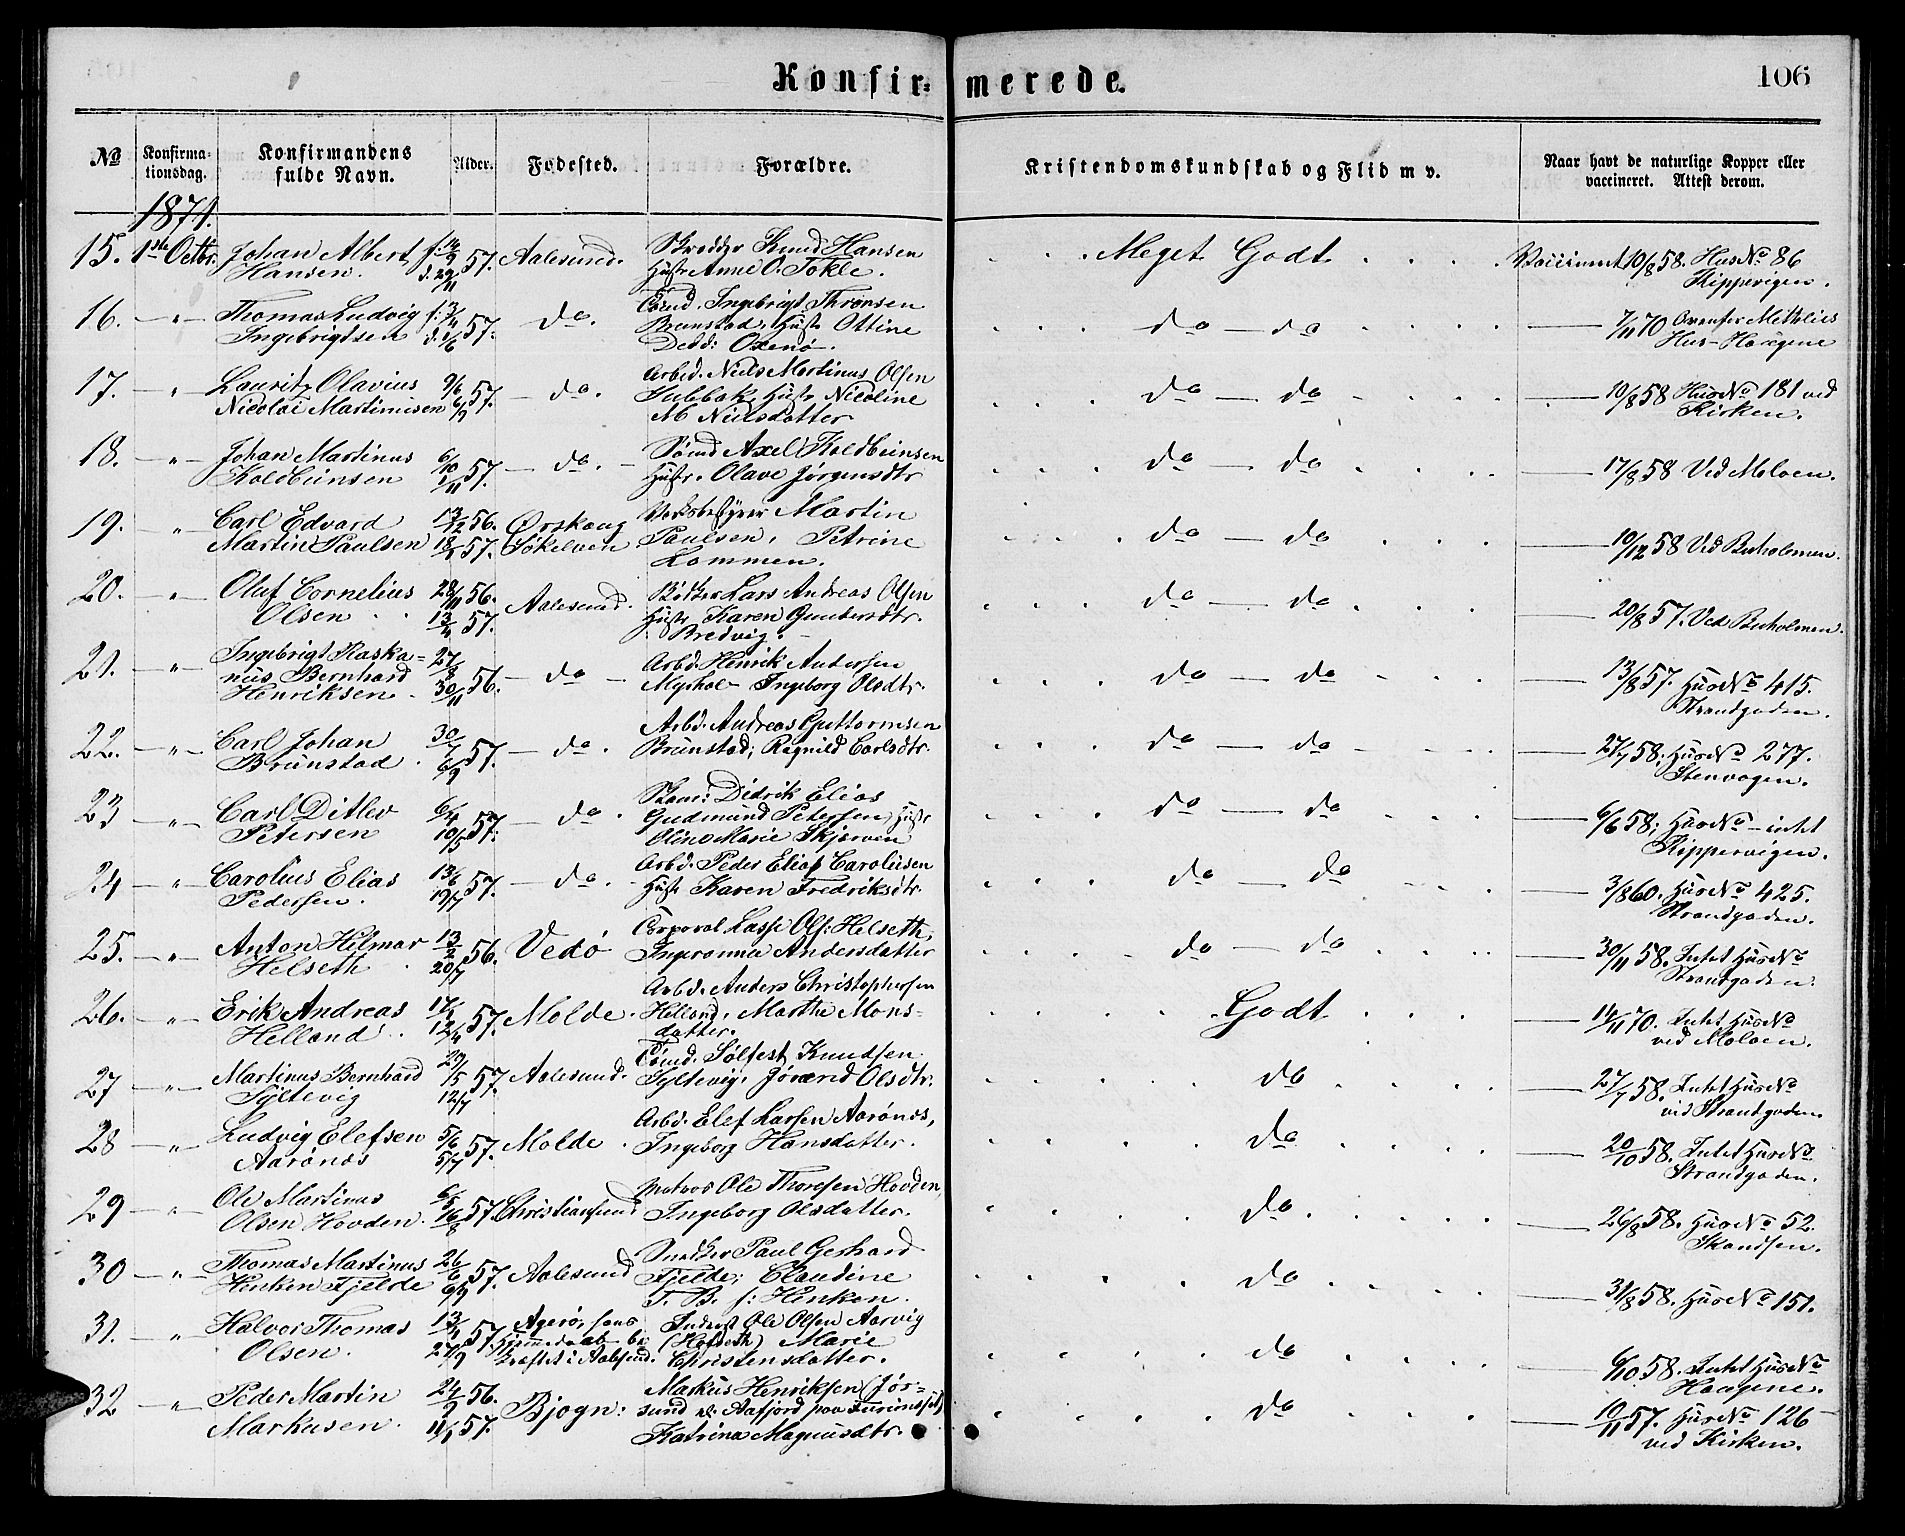 Konfirmerede.
106
No
Konfirmationsdag.
Konfirmandens fulde Navn.
Alder.
Fødested.
Forældre.
Kristendomskundskab og Flid m v.
Naar havt de naturlige Kopper eller vaccineret. Attest derom.
1871.
15. 1ste Octbr. Johan Albert f. 57. Aalesund. Skrædder Knud Hansen Meget Godt Vaccineret 10/8 58. Hus No 86
Hansen. d. Hustr Anne O. Tokle. Kippervigen.
16. " Thomas Ludvig f. 57. do. Ingebrigt Thronsen do do 7/11 70
Ingebrigtsen d. Brunstad, Hustr Ottine Hus - Haugene
Oxenø.
17. " Lauritz Olavius 9/6 57. do. Arbd. Niels Martinus Olsen do do 10/8 58 Hus No 181 ved
Nicolai Martinisen 6/9 Hustr Nicoline Kirken.
M Nielsdatter
18. " Johan Martinus 6/10 57. do. Sømd Axel Koldbeinsen do do 17/8 58 Ved Moloen.
Koldbeinsen 1/11 Hustr. Olave Jørgensdtr
19. " Carl Edvard 13/12 56. Ørskoug Martin do do 10/12 58 Ved Buholmen.
Martin Paulsen 57. Søkelven Paulsen, Petrine
Lommen.
20. " Oluf Cornelius 28/11 56. Aalesund. Bødker Lars Andreas Olsen do do 20/8 57. Ved Buholmen.
Olsen 13/4 57. Hustr Karen Gunbersdtr.
Bredvig.
21. " Ingebrigt Kaska= 56. do Arbd. Henrik Andersen do do 13/8 57. Hus No 415.
nius Bernhard 30/11 Myrhol Ingeborg Olsdtr. Strandgaden.
Henriksen
22. " Carl Johan 30/7 57. do. Arbd. Andreas Guttormsen do do 27/7 58; Hus No 277.
Brunstad 6/9 Brunstad; Ragnild Carlsdtr. Stenvogen.
23 " Carl Ditlev 6/4 57. do. Didrik Elias do do 6/6 58; Hus No - intet
Petersen 10/5 Gudmund Petersen, Hustr Kippervigen.
Oline Marie Skjerven
24 " Carolius Elias 13/6 57. do. Arbd. Peder Elias Caroliusen do do 3/8 60. Hus No 425.
Pedersen. 19/7 Hustr Karen Fredriksdtr. Strandgaden.
25. " Anton Hilmar 13/2 56. Vedø Corporal Lasse Ols: Helseth, do do 30/11 58. Intet Hus No
Helseth 20/7 Ingeranna Andersdatter Strandgaden.
26. " Erik Andreas 57. Molde. Arbd. Anders Christophersen Godt 14/11 70. Intet Hus No
Helland. 12/4 Helland, Marthe Mons= ved Moloen.
datter.
27 " Martinus Bernhard 57. Aalesund. Sømd. Sølfest Knudsen do 27/7 58. Intet Hus No
Syltevig 12/7 Syltevig, Jørend Olsdtr. ved Strandgaden.
28 " Ludvig Elefsen 5/6 57. Molde. Arbd. Elef Larsen Aarønæs, do 20/10 58. Intet Hus No
Aarønæs 5/7 Ingeborg Hansdatter. Strandgaden.
29 " Ole Martinus 6/5 57. Christiansund Matros Ole Thoresen Hovden, do 26/8 58. Hus No 52.
Olsen Hovden. 16/8 Ingeborg Olsdatter. Skandsen.
30 " Thomas Martinus 26/6 57. Aalesund Snedker Paul Gerhard do 31/8 58. Hus No 151.
Henken Fjelde 6/9 Fjelde; Claudine
T. B. f: Henken.
31. " Halvor Thomas 13/4 57. Agerø, Ole Olsen Aarvig do 6/10 58. Intet Hus No
Olsen. 27/9 i Aalesund. Marie Haugene.
Christensdatter.
32 " Peder Martin 24/9 56. Bjogn: Markus Henriksen (Jør= do 10/11 57. Hus No 126
Markusen. 57. sund Aafjord paa ved Kirken.
Katrina Magnusdtr.